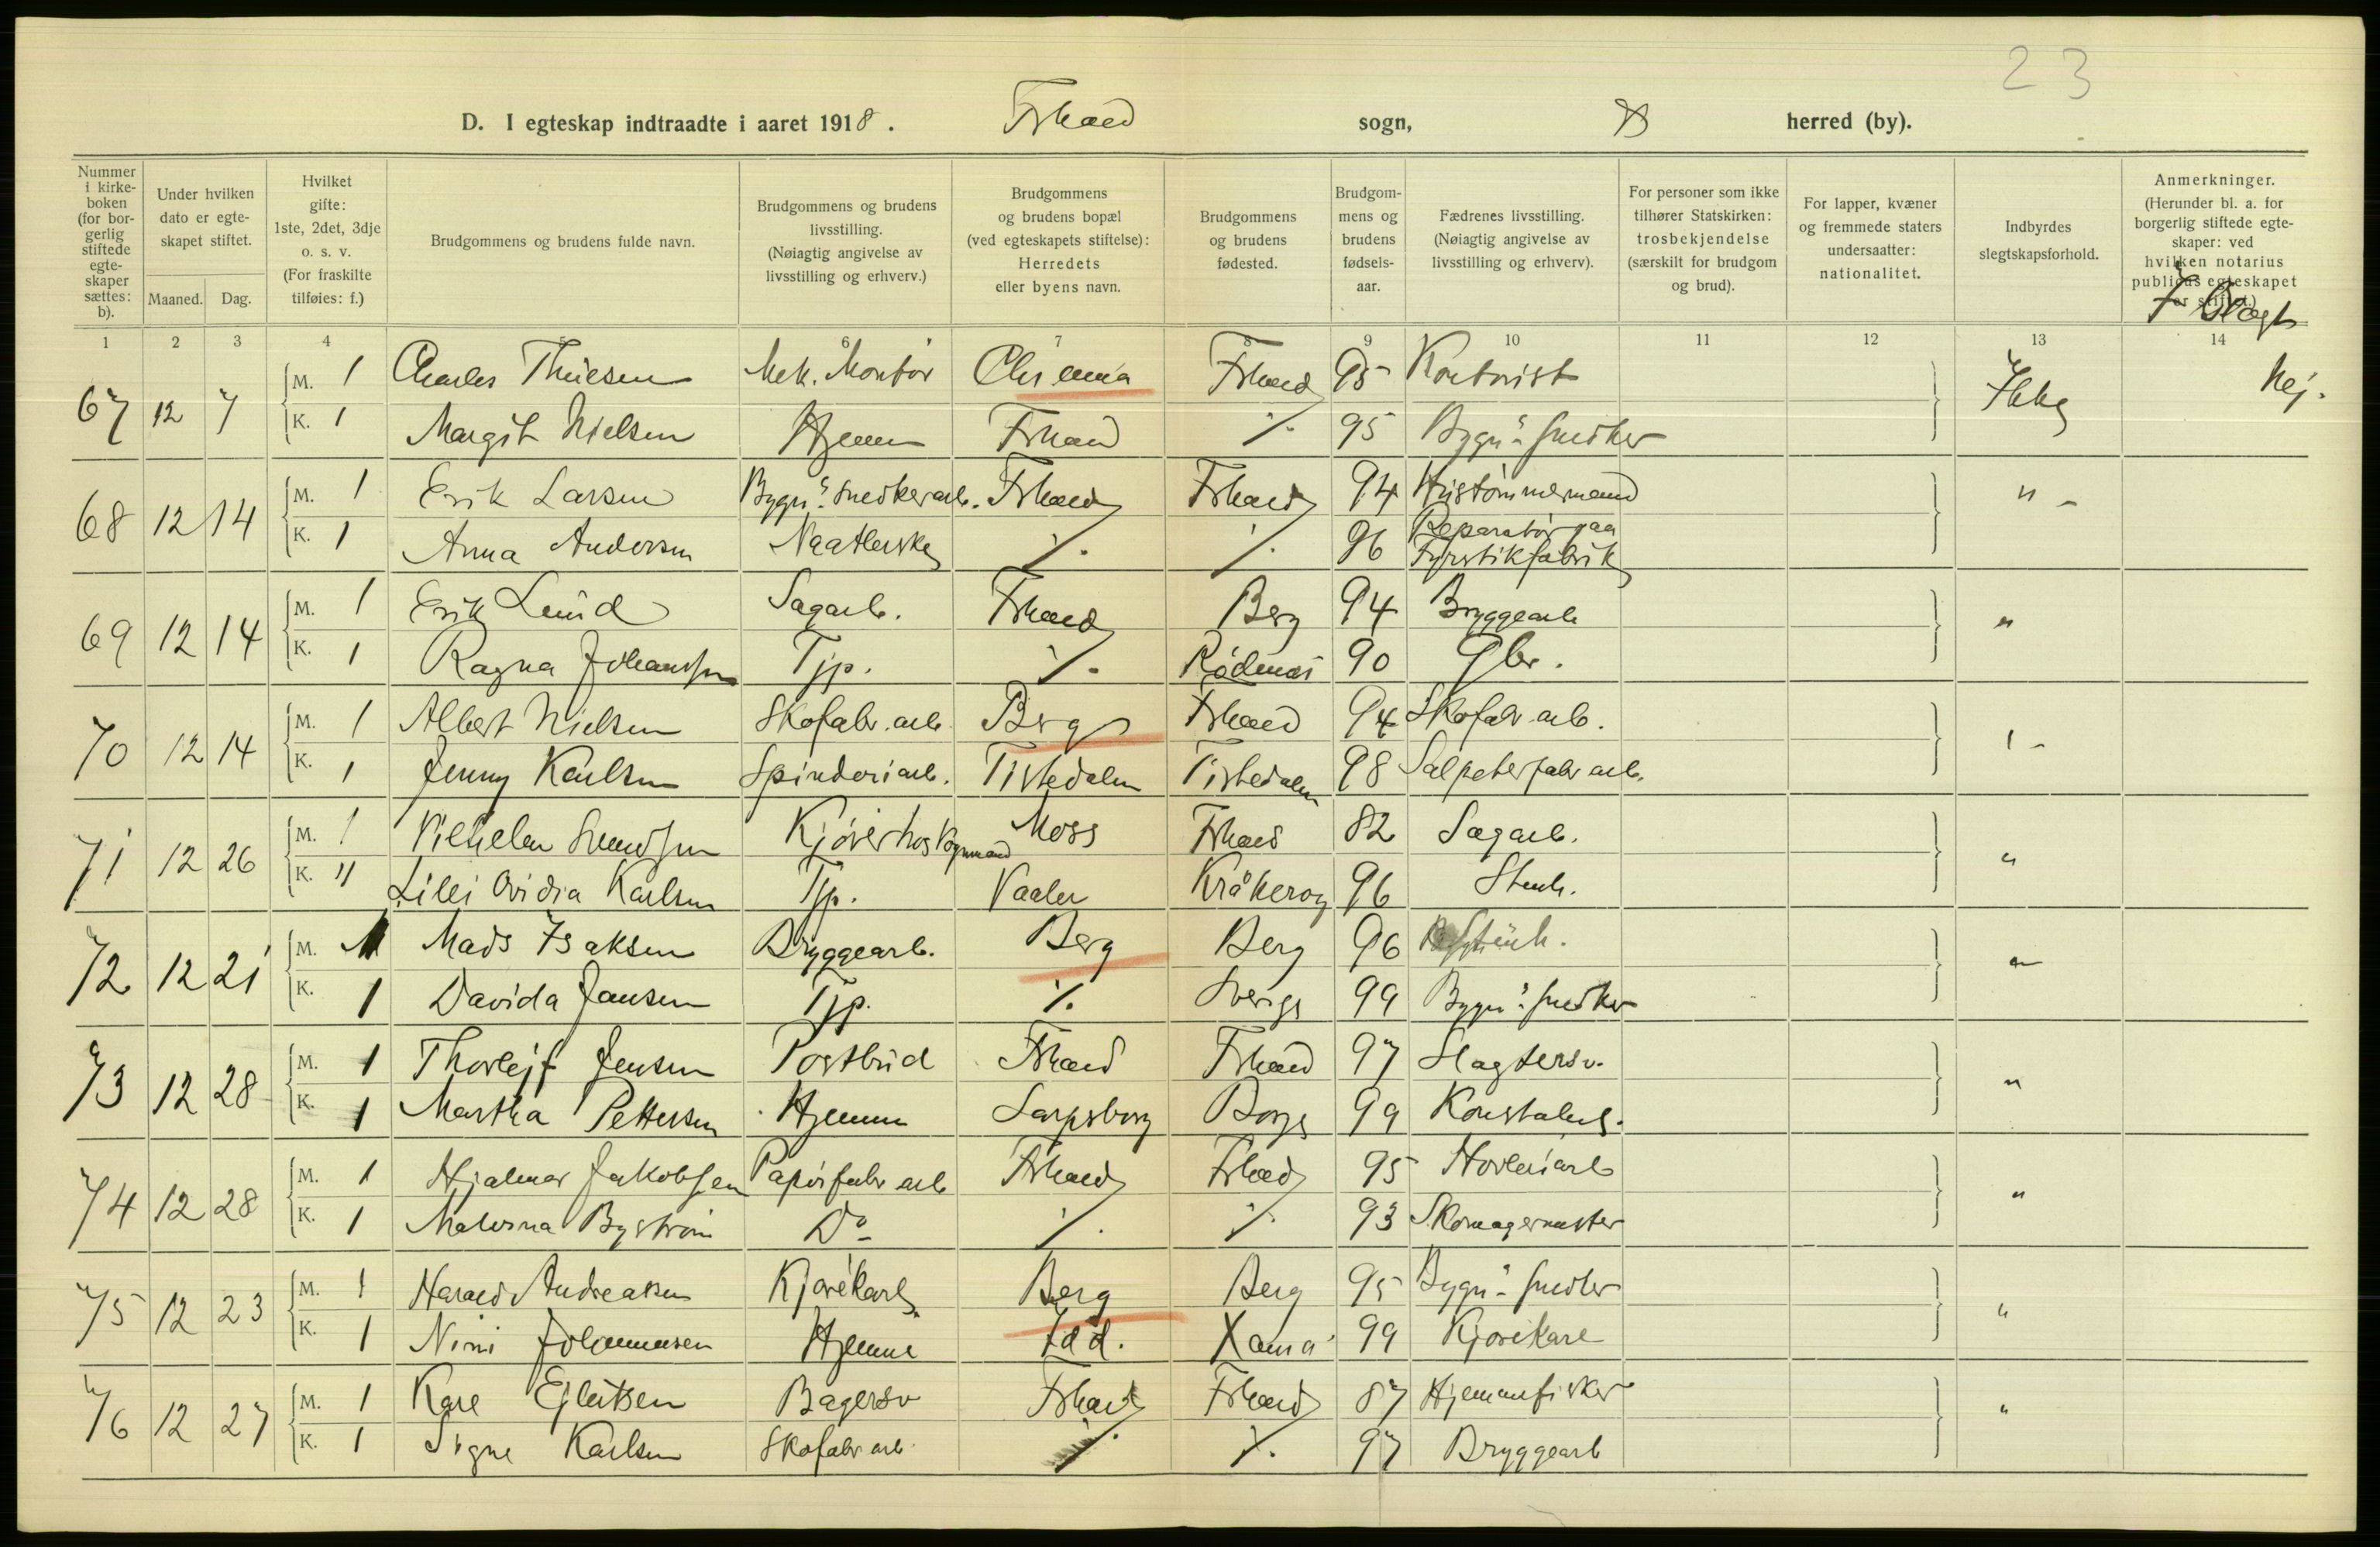 23
D. I egteskap indtraadte i aaret 1918. Frhald sogn, herred (by).
Nummer i kirkeboken (for borgerlig stiftede egteskaper sættes: b).
Under hvilken dato er egteskapet stiftet.
Maaned. Dag.
Hvilket gifte: 1ste, 2det, 3dje o. s. v. (For fraskilte tilføies: f.)
Brudgommens og brudens fulde navn.
Brudgommens og brudens livsstilling. (Nøiagtig angivelse av livsstilling og erhverv.)
Brudgommens og brudens bopæl (ved egteskapets stiftelse): Herredets eller byens navn.
Brudgommens og brudens fødested.
Brudgommens og brudens fødselsaar.
Fædrenes livsstilling. (Nøiagtig angivelse av livsstilling og erhverv).
For personer som ikke tilhører Statskirken: trosbekjendelse (særskilt for brudgom og brud).
For lapper, kvæner og fremmede staters undersaatter: nationalitet.
Indbyrdes slegtskapsforhold.
Anmerkninger. (Herunder bl. a. for borgerlig stiftede egteskaper: ved hvilken notarius publicus egteskapet er stiftet.)
1 2 3 4 5 6 7 8 9 10 11 12 13 14
67 12 7 M. 1 Charles Thiesen Mek. Montör Chr.ania Frhald 95 Kontorist Ikke Nej.
K. 1 Margit Nielsen Hjemme Frhald ∕. 95 Bygn.s Snedker
68 12 14 M. 1 Erik Larsen Bygn.s Snedkerarb. Frhald Frhald 94 Hustömmermand " -
K. 1 Anna Andersen Naatlerske ∕. ∕. 96 Reparatör paa Fyrstikfabrik
69 12 14 M. 1 Erik Lund Sagarb. Frhald Berg 94 Bryggearb "
K. 1 Ragna Johanssen Tjp. ∕. Rödenæs 90 Gbr.
70 12 14 M. 1 Albert Nielsen Skofabr. arb. Berg Frhald 94 Skofabr arb.
K. 1 Jenny Karlsen Spinderiarb. Tistedalen Tistedalen 98 Salpeterfabr arb.
71 12 26 M. 1 Vilhelm Svendsen Kjörer hos Vognmand Moss Frhald 82 Sagarb. "
K. " Lilli Ovidia Karlsen Tjp. Vaaler Kråkeröy 96 Stenh.
72 12 21 M. 1 Mads Isaksen Bryggearb. Berg Berg 96 Stenh. "
K. 1 Davida Jansen Tjp. ∕. Sverige 99 Bygn.s Snedker
73 12 28 M. 1 Thorlejf Jensen Postbud Frhald Frhald 97 Slagtersv. "
K. 1 Martha Pettersen Hjemme Sarpsborg Borge 99 Konstabel.
74 12 28 M. 1 Hjalmar Jakobsen Papirfabr arb Frhald Frhald 95 Hövleriarb "
K. 1 Malerna Byström Do ∕. ∕. 93 Skomagermester
75 12 23 M. 1 Harald Andreasen Kjörekarl Berg Berg 95 Bygn.s Snedker "
K. 1 Nini Johannesen Hjemme Idd. Xania 99 Kjörekarl
76 12 27 M. 1 Kåre Ejlertsen Bagersv Frhald Frhald 87 Hjemmefisker "
K. 1 Signe Karlsen Skofabr arb ∕. ∕. 97 Bryggearb